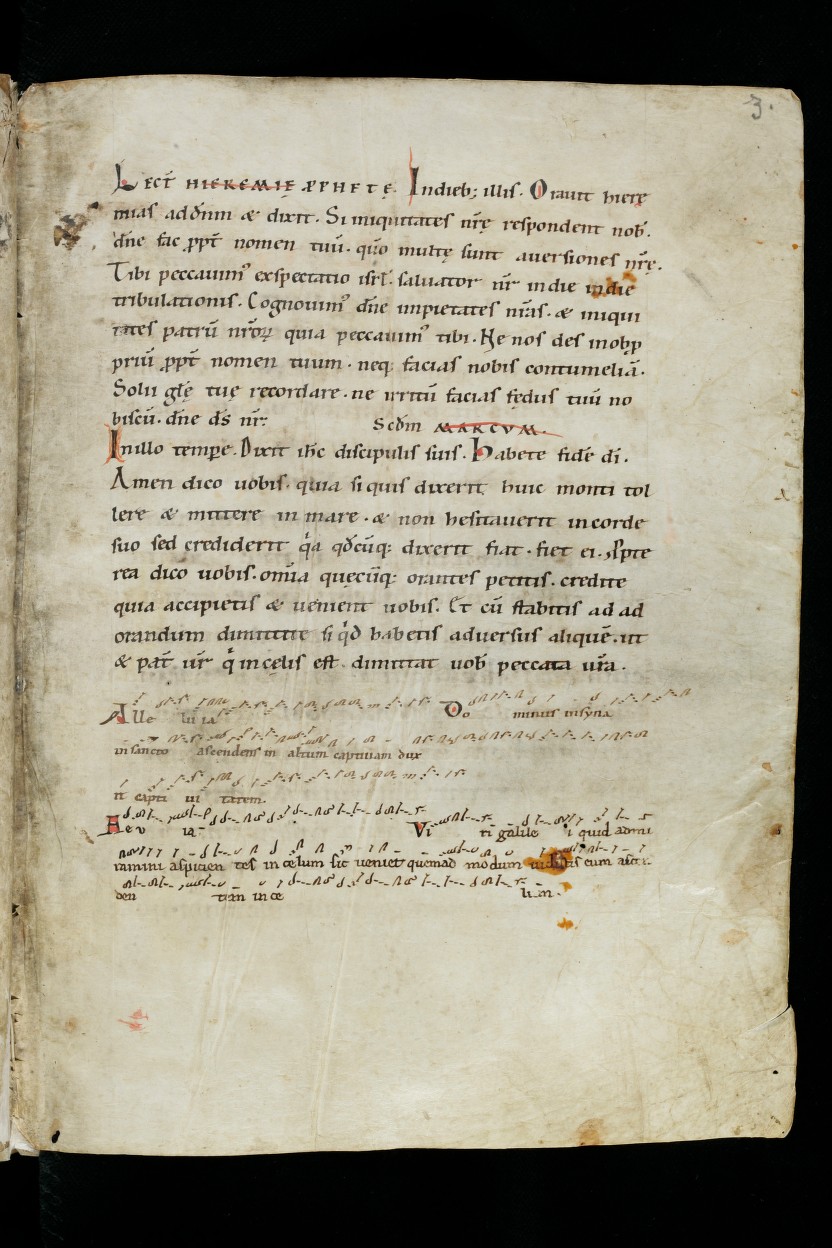 3.
Lect HIEREMIE PPHETE. Indieb; illis. Orauit hiere
mias ad dnm & dixit. Si iniquitates nrę respondent nob.
dne fac ppt nomen tuū. quō multę sunt auersiones nrę.
Tibi peccauim' exspectatio isrl. saluator nr indie indie
tribulationis. Cognouim' dne impietates nras. & iniqui
tates patrū nroꝝ quia peccauim' tibi. Ne nos des inobp
priū ppt nomen tuum. neq; facias nobis contumeliā.
Solii glę tuę recordare. ne irritū facias fędus tuū no
biscū. dne ds nr.
Scdm MARCVM.
Inillo tempe. Dixit ihc discipulis suis. Habete fidē di.
Amen dico uobis. quia siquis dixerit huic monti tol
lere & mittere in mare. & non hesitauerit incorde
suo sed crediderit qa qdcūq; dixerit fiat. fiet ei. Ppte
rea dico uobis. omīa quęcūq; orantes petitis. credite
quia accipietis & uenient uobis. Et cū stabitis ad ad
orandum dimittite si qd habetis aduersus aliquē. ut
& pat ur q incęlis est dimittat uob peccata ura.
Alle lu ia Do minus insyna
in sancto ascendens in altum captiuam dux
it capti ui tatem.
Aeu ia Vi ri galile i quid admi
ramini aspicien tes in cęlum sic ueniet quemad modum uidistis eum asce
den tem in ce lum.